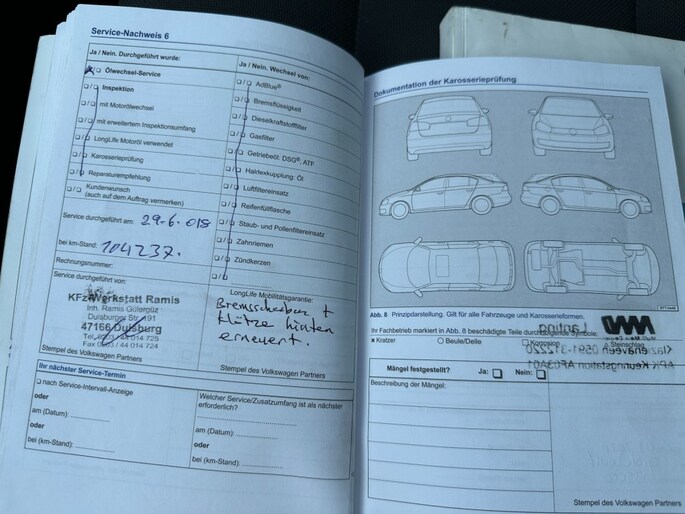 Service-Nachweis 6
Ja / Nein. Durchgeführt wurde:
Ölwechsel-Service
Inspektion
mit Motorölwechsel
mit erweitertem Inspektionsumfang
LongLife Motoröl verwendet
Karosserieprüfung
Reparaturempfehlung
Kundenwunsch
(auch auf dem Auftrag vermerken)
Service durchgeführt am: 29.6.018
bei km-Stand: 104237.
Rechnungsnummer:
Service durchgeführt von:
KFz-Werkstatt Ramis
Inh. Ramis
Duisburger Str. 191
47166 Duisburg
44 014 725
44 014 724
Stempel des Volkswagen Partners
Ja / Nein. Wechsel von:
AdBlue®
Bremsflüssigkeit
Dieselkraftstofffilter
Gasfilter
Getriebeöl: DSG®, ATF
Haldexkupplung: Öl
Luftfiltereinsatz
Reifenfüllflasche
Staub- und Pollenfiltereinsatz
Zahnriemen
Zündkerzen
LongLife Mobilitätsgarantie:
Bremsscheiben +
Klötze hinten
erneuert.
Stempel des Volkswagen Partners
Ihr nächster Service-Termin
nach Service-Intervall-Anzeige
oder
am (Datum):
oder
bei (km-Stand):
Welcher Service/Zusatzumfang ist als nächster
erforderlich?
am (Datum):
oder
bei (km-Stand):
Dokumentation der Karosserieprüfung
Abb. 8 Prinzipdarstellung. Gilt für alle Fahrzeuge und Karosserieformen.
Ihr Fachbetrieb markiert in Abb. 8 beschädigte Teile durch folgende Symbole:
x Kratzer
Beule/Delle
Korrosion
Steinschlag
Mängel festgestellt? Ja: Nein:
Beschreibung der Mängel:
Stempel des Volkswagen Partners